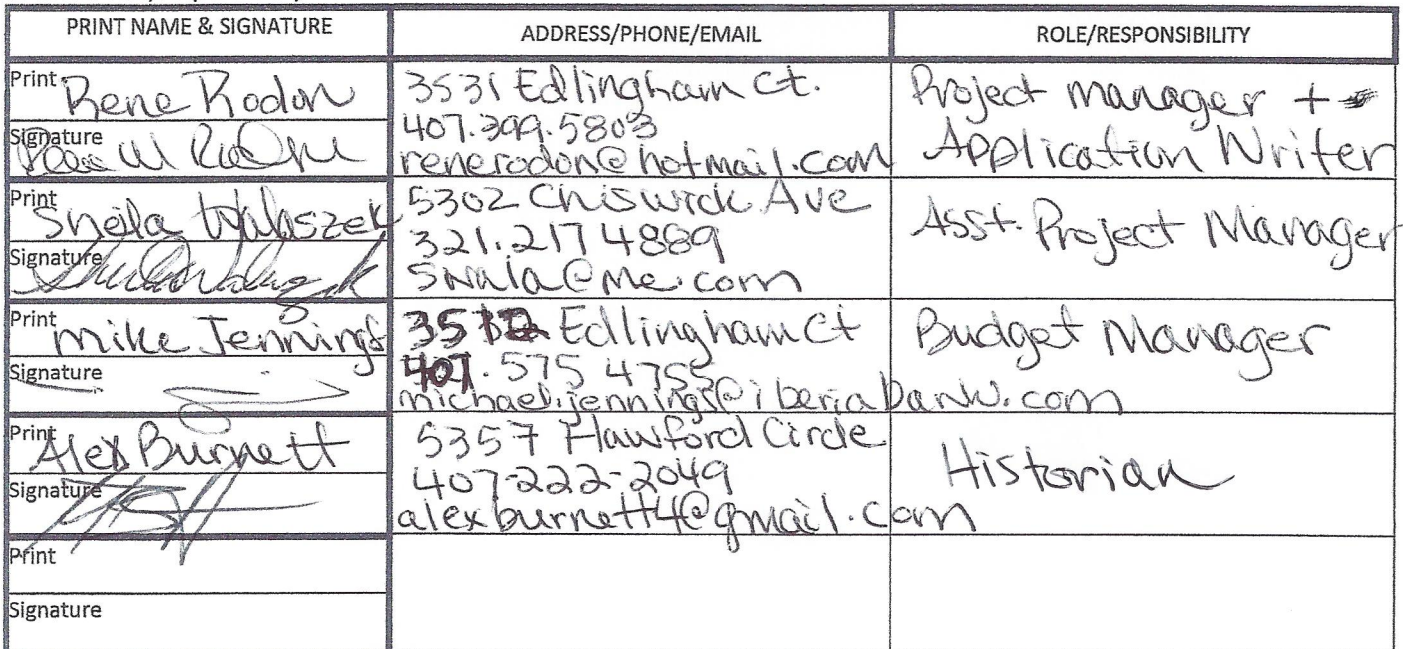 PRINT NAME & SIGNATURE
ADDRESS/PHONE/EMAIL
ROLE/RESPONSIBILITY
Print Rene Rodon
Signature
3531 Edlingham Ct.
407.399.5803
renerodon@hotmail.com
Project manager +
Application Writer
Print Sheila Walaszek
Signature
5302 Chiswick Ave
321.217 4889
swala@me.com
Asst. Project Manager
Print Mike Jennings
Signature
Edlingham Ct
407.575 4755
michael.jennings@iberiabank.com
Budget Manager
Print Alex Burnett
Signature
5357 Hawford Circle
407-222-2049
alexburnett4@gmail.com
Historian
Print
Signature